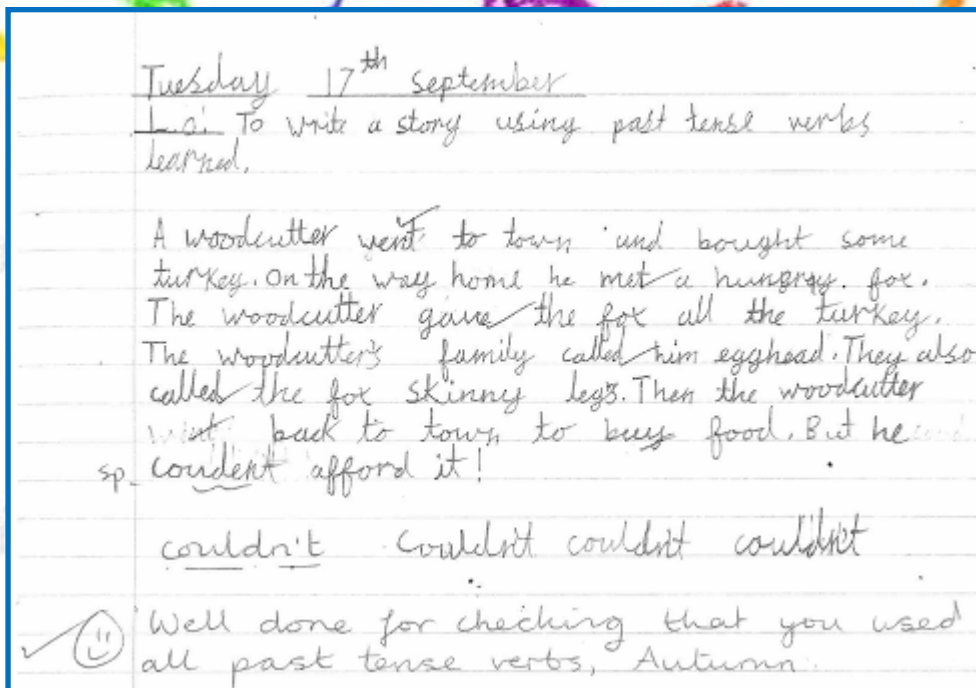 Tuesday 17th September
L.O: To write a story using past tense verbs
learned.
A woodcutter went to town and bought some
turkey. On the way home he met a hungry. fox.
The woodcutter gave the fox all the turkey.
The woodcutter's family called him egghead. They also
called the fox skinny legs. Then the woodcutter
back to town to buy food. But he
sp. coudent afford it!
couldn't couldn't couldn't couldn't
Well done for checking that you used
all past tense verbs, Autumn.